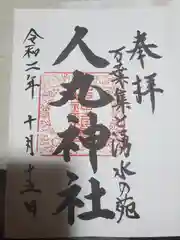 奉拝
万葉集と湧水の苑
人丸神社
令和二年 十月 十三日